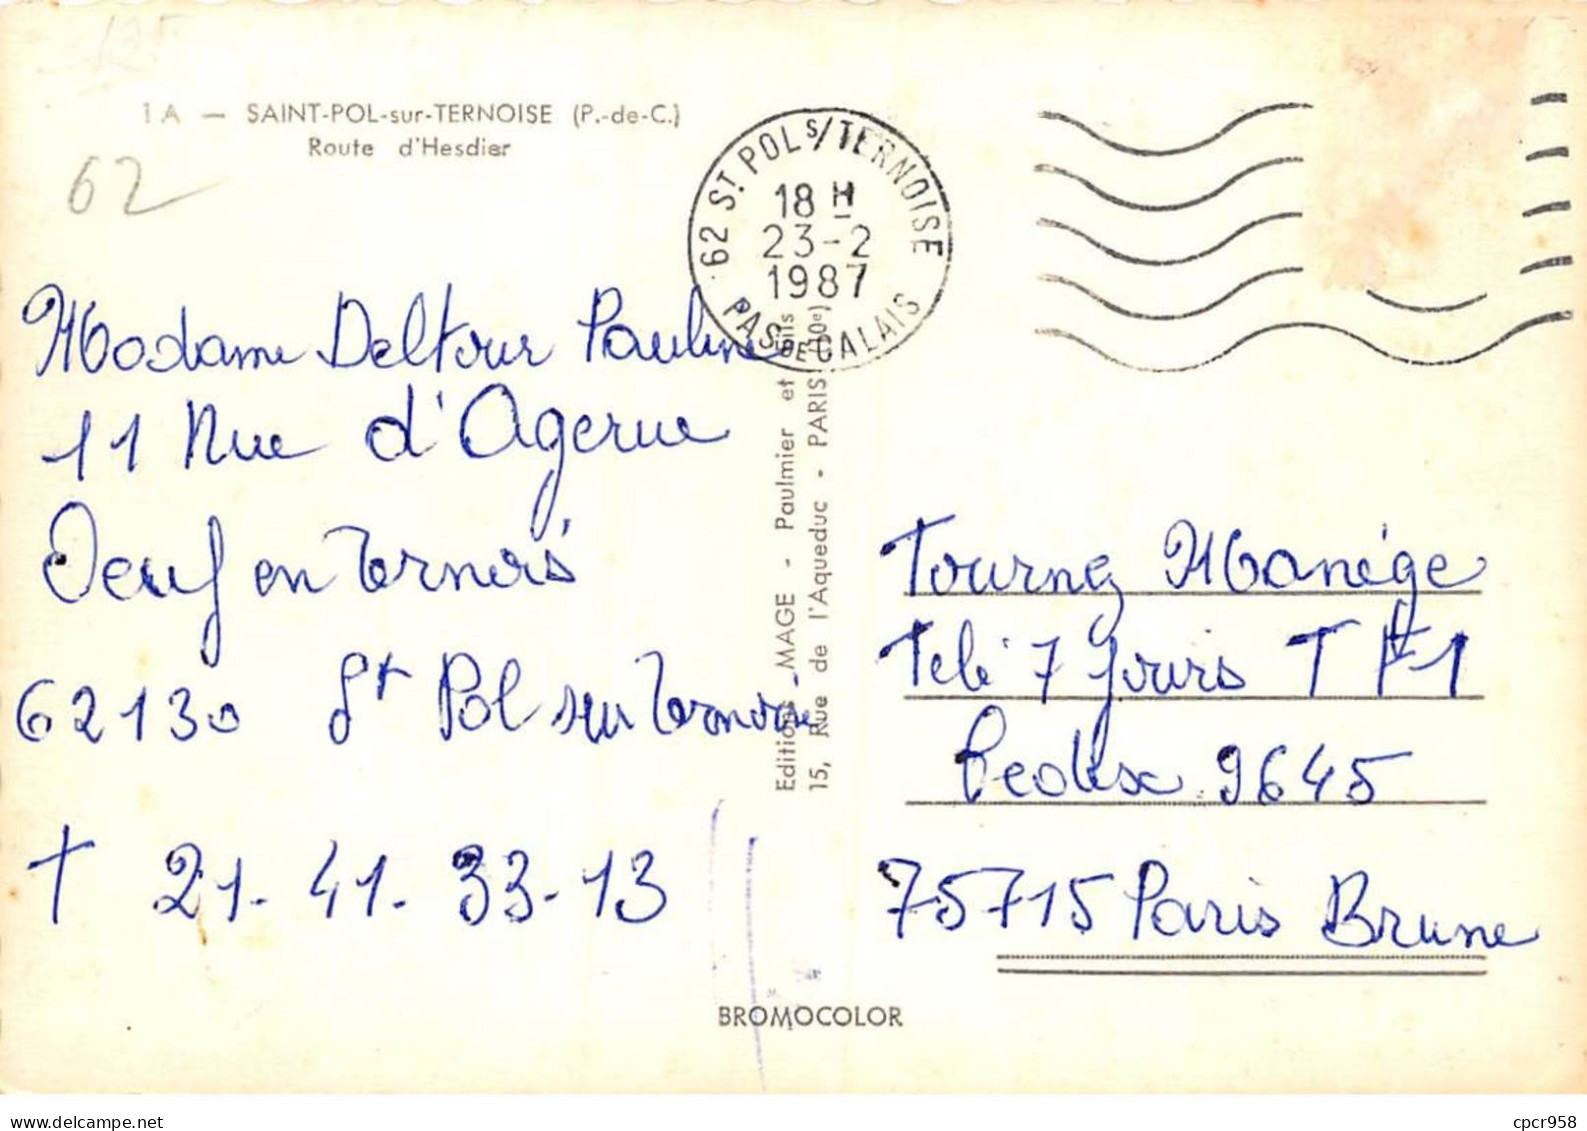 1 A — SAINT-POL-sur-TERNOISE (P.-de-C.)
Route d'Hesdier
62
62 ST POL S/TERNOISE
18 H
23-2
1987
PAS DE CALAIS
Madame Deltour Pauline
11 Rue d'Agerue
Oeuf en Ternois
62130 St Pol sur Ternoise
T 21-41-33-13
Editions MAGE - Paulmier et Fils
15, Rue de l'Aqueduc - PARIS (10e)
Tournez Manége
Telé 7 Jours T F1
Cedex 9645
75715 Paris Brune
BROMOCOLOR
cpcr958